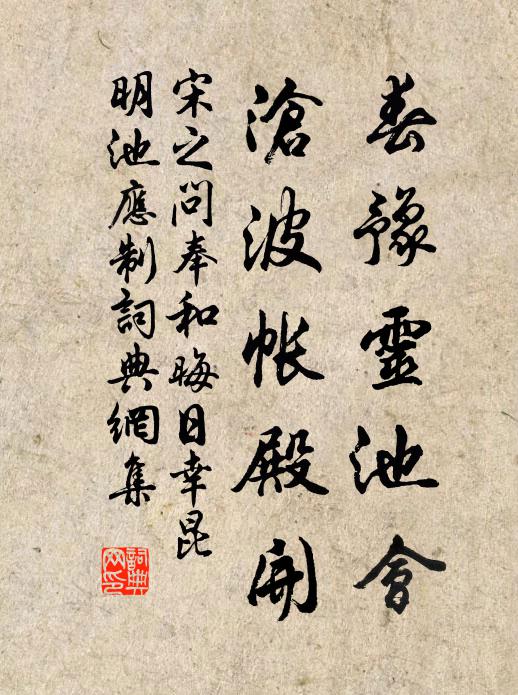 春豫靈池會
滄波帳殿開
宋之問奉和晦日幸昆
明池應制詞典網集
詞典網印